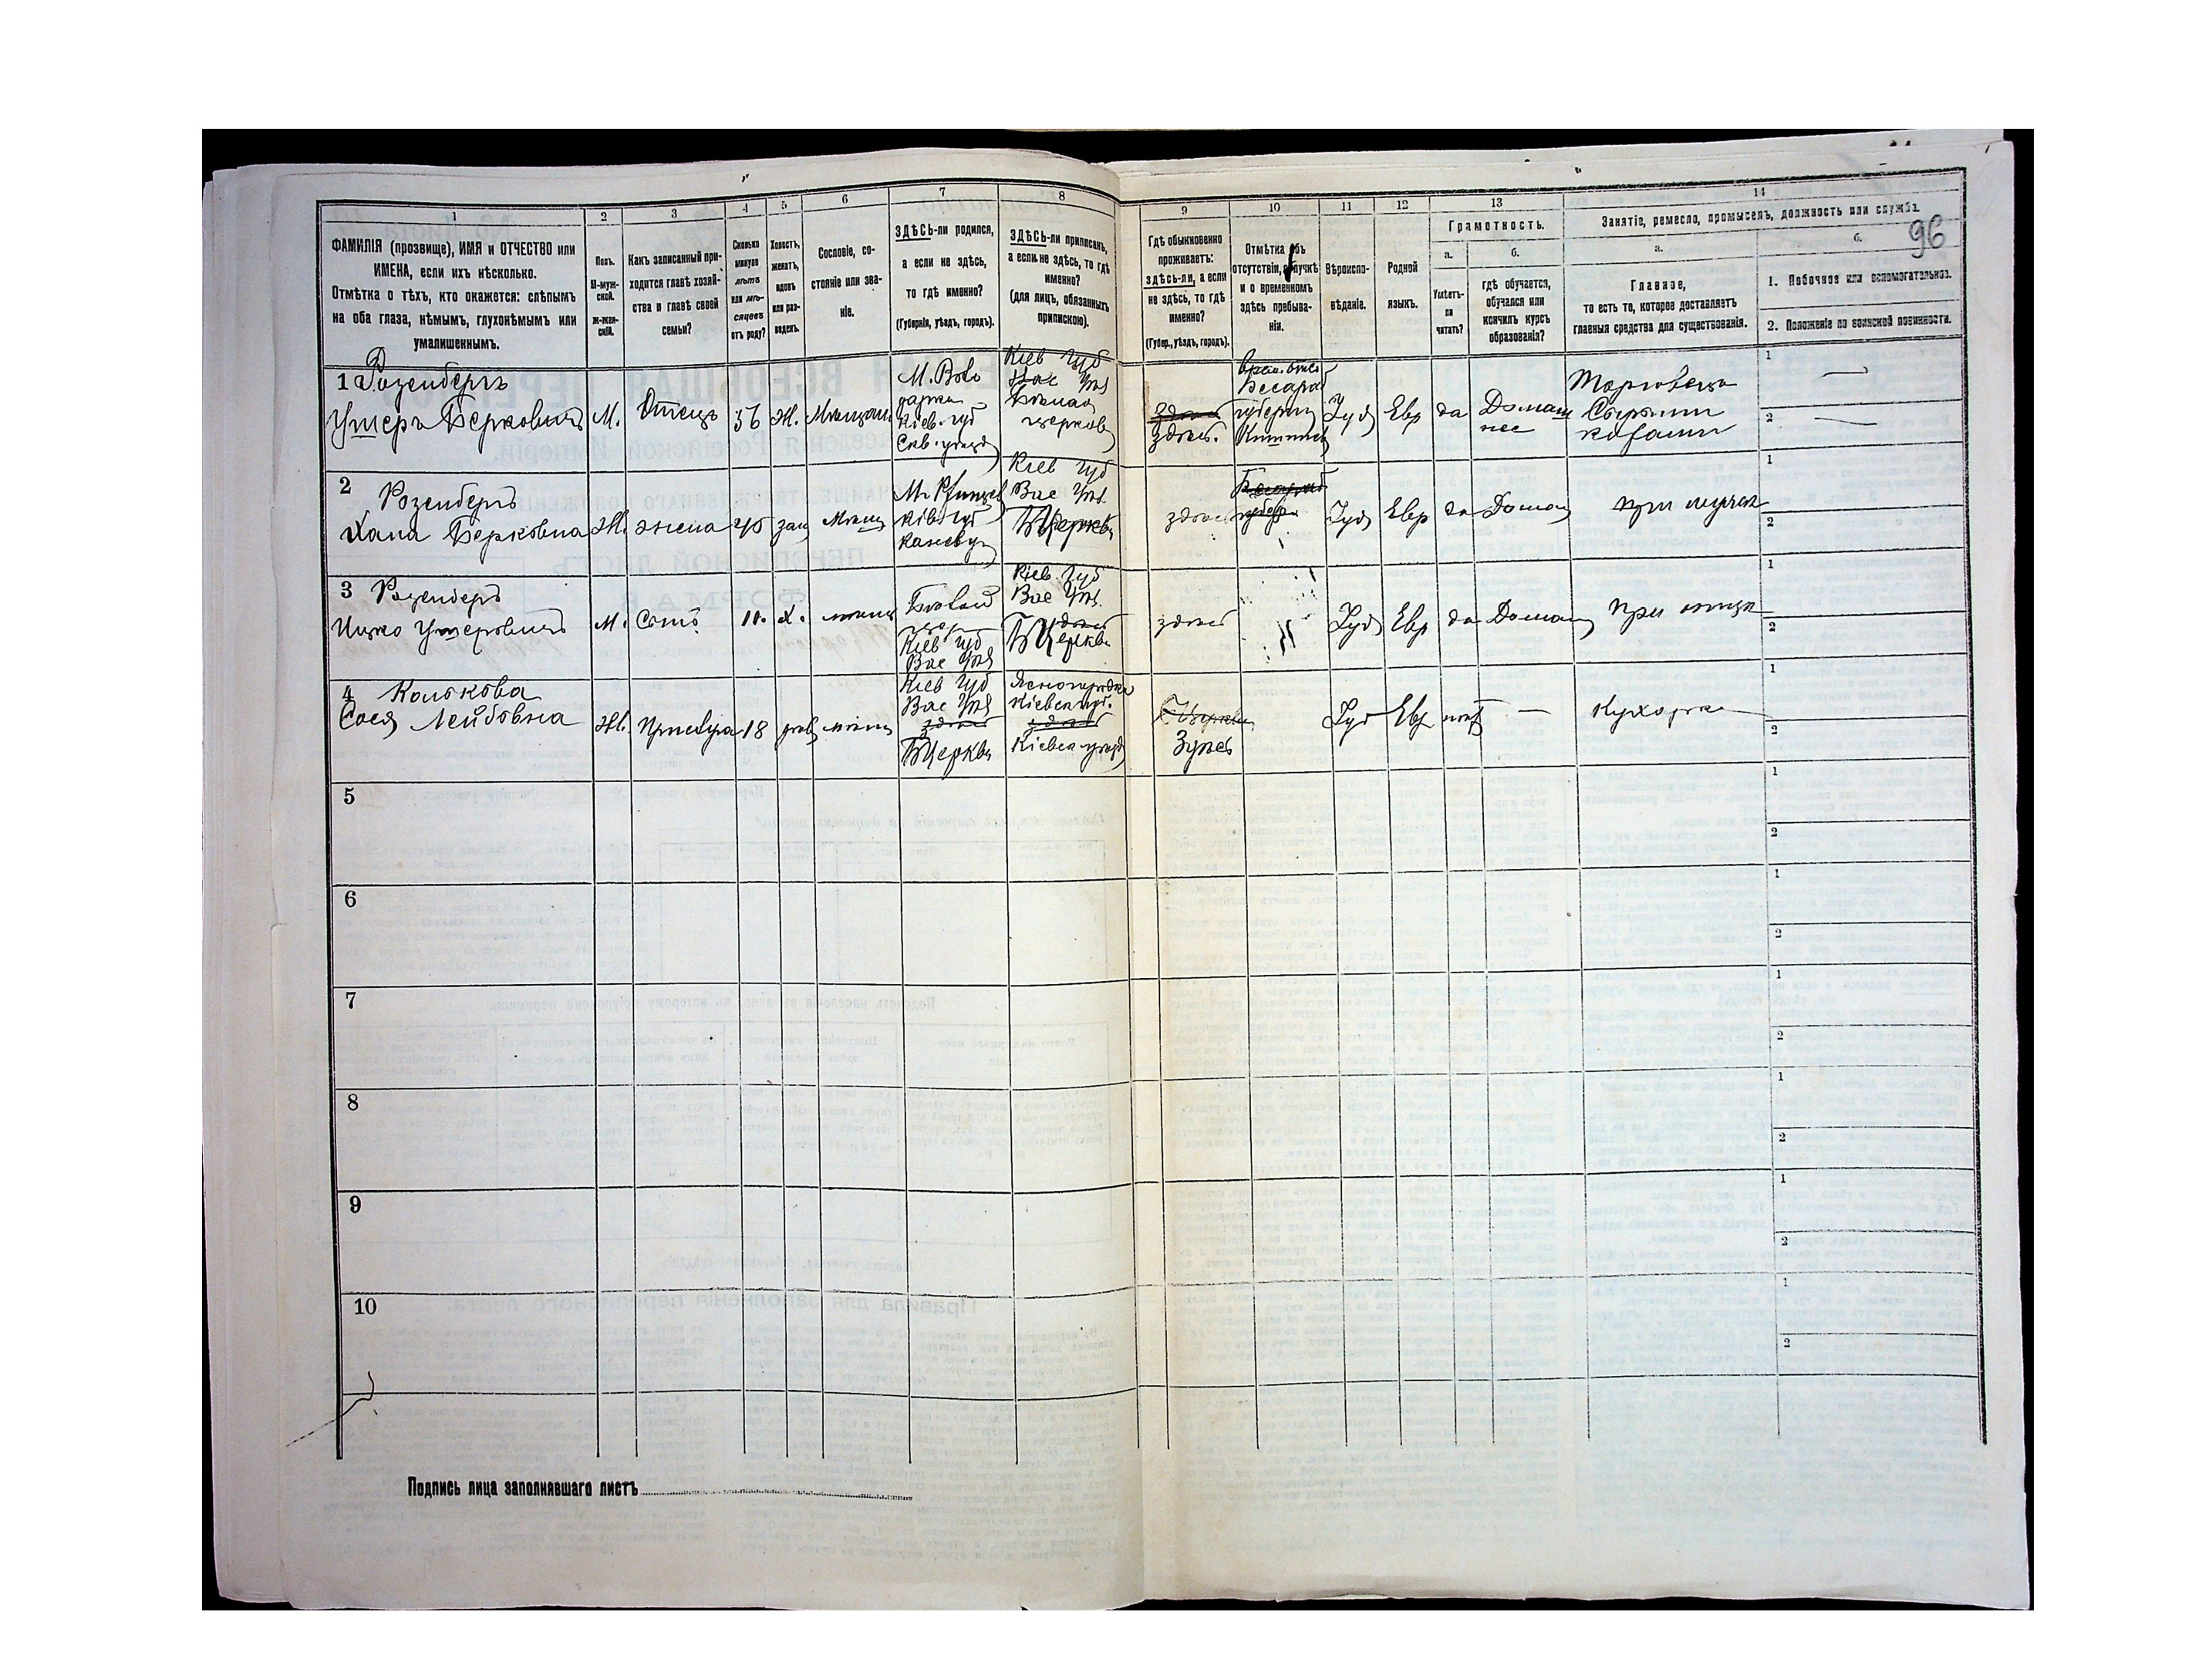 1 2 3 4 5 6 7 8 9 10 11 12 13 14
96
ФАМИЛІЯ (прозвище), ИМЯ и ОТЧЕСТВО или
ИМЕНА, если ихъ нѣсколько.
Отмѣтка о тѣхъ, кто окажется: слѣпымъ
на оба глаза, нѣмымъ, глухонѣмымъ или
умалишеннымъ.
Полъ.
М-муж-
ской.
Ж-жен-
скій.
Какъ записанный при-
ходится главѣ хозяй-
ства и главѣ своей
семьи?
Сколько
минуло
лѣтъ
или мѣ-
сяцевъ
отъ роду?
Холостъ,
женатъ,
вдовъ
или раз-
веденъ.
Сословіе, со-
стояніе или зва-
ніе.
ЗДѢСЬ-ли родился,
а если не здѣсь,
то гдѣ именно?
(Губернія, уѣздъ, городъ).
ЗДѢСЬ-ли приписанъ,
а если не здѣсь, то гдѣ
именно?
(для лицъ, обязанныхъ
припискою).
Гдѣ обыкновенно
проживаетъ:
здѣсь-ли, а если
не здѣсь, то гдѣ
именно?
(Губер., уѣздъ, городъ).
Отмѣтка объ
отсутствіи, отлучкѣ
и о временномъ
здѣсь пребыва-
ніи.
Вѣроиспо-
вѣданіе.
Родной
языкъ.
Грамотность.
а.
Умѣетъ-
ли
читать?
б.
гдѣ обучается,
обучался или
кончилъ курсъ
образованія?
Занятіе, ремесло, промыселъ, должность или служба.
а.
Главное,
то есть то, которое доставляетъ
главныя средства для существованія.
б.
1. Побочное или вспомогательное.
2. Положеніе по воинской повинности.
1 Розенбергъ
Ушеръ Берковичъ
М.
Отецъ
56
Ж.
Кіев. губ
Скв. уѣзд
Кіев губ
Вас
Бѣлая
церковь
здѣсь.
Бесараб
губерни
Іуд
Евр
да
Домаш
нее
Торговецъ
Сырыми
кожами
1
2
2 Розенбергъ
Хана Берковна
Ж.
жена
45
зам
мѣщ
Кіев губ
Канев у
Кіев губ
Вас
БЦерквь
здѣсь
Іуд
Евр
да
Домаш
при мужѣ
1
2
3 Розенбергъ
Ицко Ушеровичъ
М.
Сынъ
11.
Х.
мѣщ
Кіев губ
Вас
Кіев. губ
Вас
БЦерквь
здѣсь
Іуд
Евр
да
Домаш
при отцѣ
1
2
4
Сося Лейбовна
Ж.
Прислуга
18
мѣщ
Кіев губ
Вас
здѣсь
БЦерквь
Ясногородка
Кіевск губ.
здѣсь
Кіевск уѣзд
Б Церквь
Здѣсь
Іуд
Евр
нѣтъ
—
Кухарка
1
2
5
1
2
6
1
2
7
1
2
8
1
2
9
1
2
10
1
2
Подпись лица заполнявшаго листъ